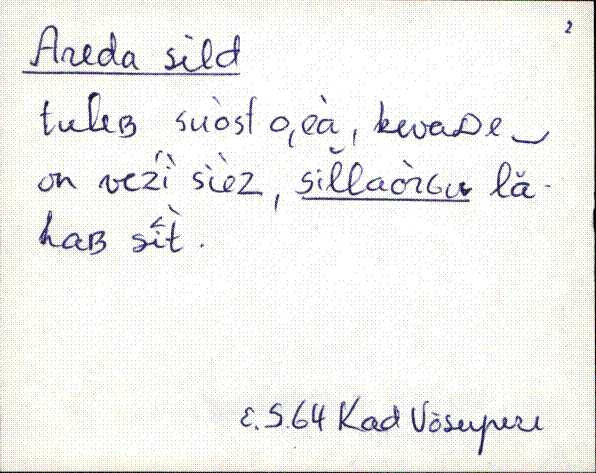 2
Areda sild
tuleʙ suòst o,eà, kevaᴅe‿
on vezì sìez, sĭllaòrɢu lǎ-
haʙ sìt̀.
E.S.64 Kad Võsuperе